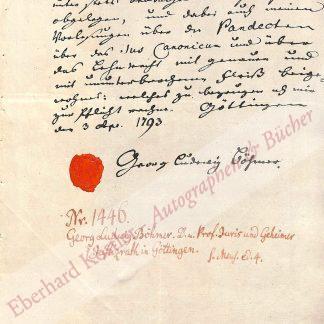 obgelegen, und dabei auch meinen
Vorlesungen über die Pandecten
über das Jus Canonicum und über
das Lehnrecht mit genauer und
mit ununterbrochenem Fleiß beige-
wohnt; welches zu bezeugen ich mir
zur Pflicht rechne. Göttingen
den 3 Apr. 1793
Georg Ludwig Böhmer.
Nr. 1446.
Georg Ludwig Böhmer. D. u. Prof. Juris und Geheimer
Justizrath in Göttingen.
s. Meus. Ed. 4.
Eberhard Köstler Autographen & Bücher